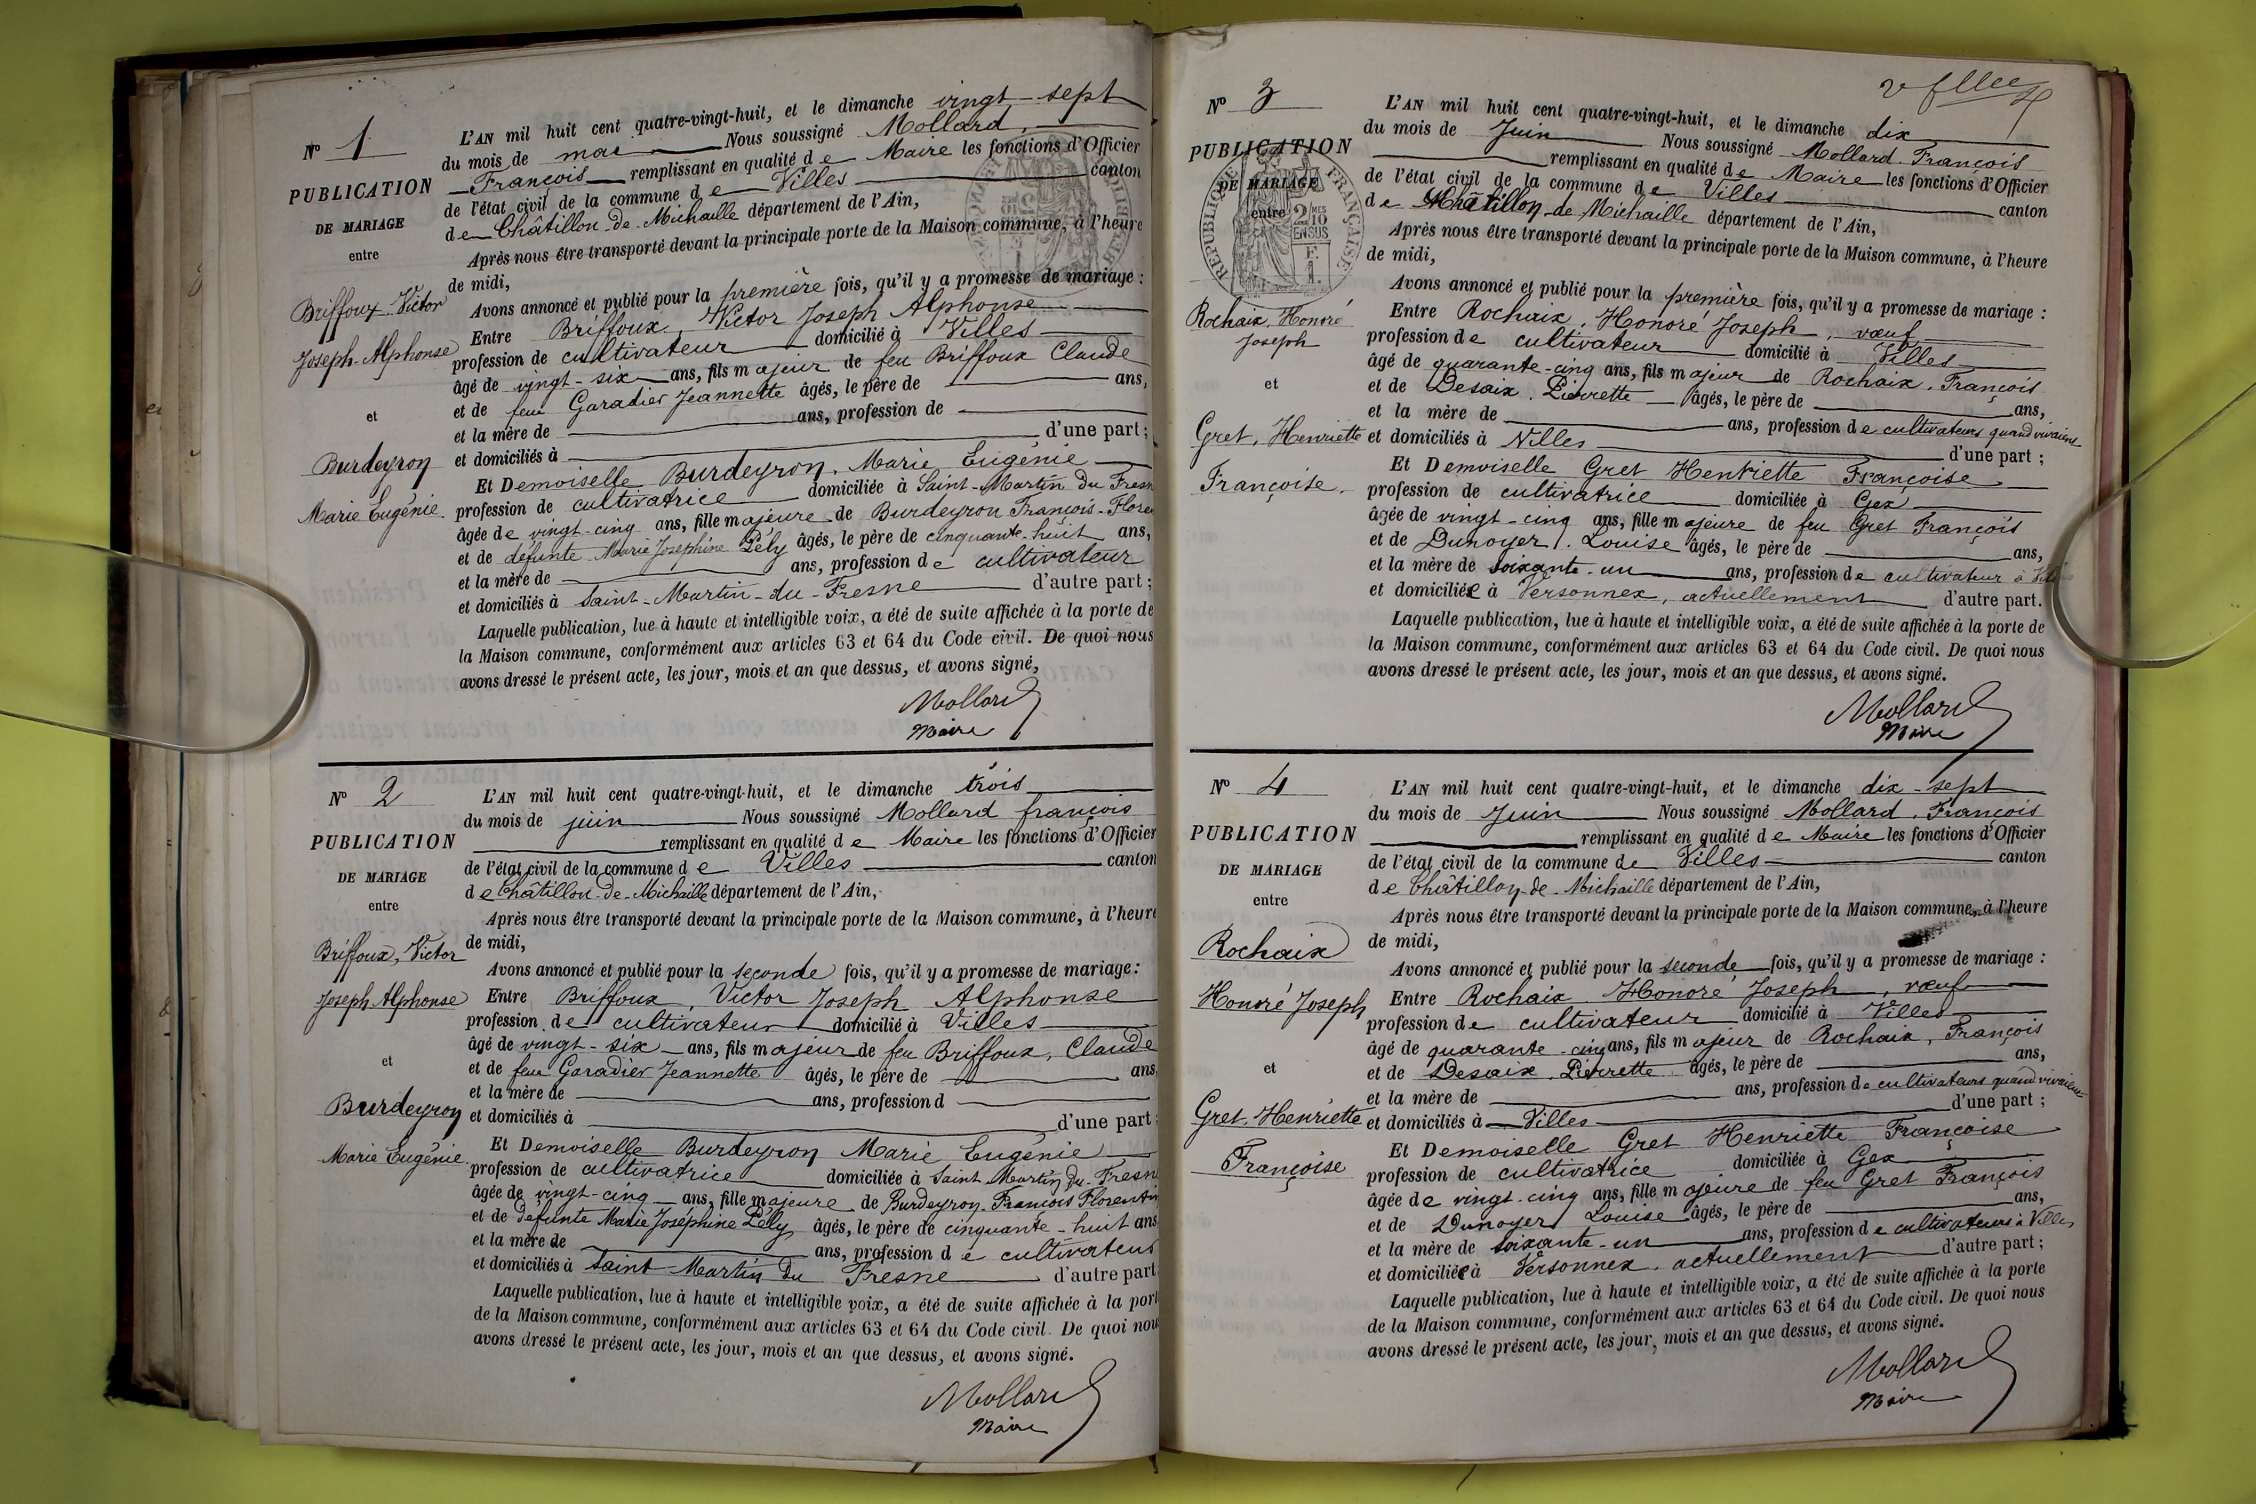 N° 1
PUBLICATION
DE MARIAGE
entre
Briffoux Victor
Joseph-Alphonse
et
Burdeyron
Marie Eugénie.
L'AN mil huit cent quatre-vingt-huit, et le dimanche vingt-sept
du mois de mai Nous soussigné Mollard,
François remplissant en qualité de Maire les fonctions d'Officier
de l'état civil de la commune de Villes canton
de Châtillon-de-Michaille département de l'Ain,
Après nous être transporté devant la principale porte de la Maison commune, à l'heure
de midi,
Avons annoncé et publié pour la première fois, qu'il y a promesse de mariage :
Entre Briffoux, Victor Joseph Alphonse
profession de cultivateur domicilié à Villes
âgé de vingt-six ans, fils majeur de feu Briffoux Claude
et de feue Garadier Jeannette âgés, le père de ans,
et la mère de ans, profession de
et domiciliés à d'une part ;
Et Demoiselle Burdeyron, Marie Eugénie
profession de cultivatrice domiciliée à Saint-Martin du Fresn
âgée de vingt-cinq ans, fille majeure de Burdeyron François-Flore
et de défunte Marie Josephine Pély âgés, le père de cinquante-huit ans,
et la mère de ans, profession de cultivateur
et domiciliés à Saint-Martin-du-Fresne d'autre part ;
Laquelle publication, lue à haute et intelligible voix, a été de suite affichée à la porte de
la Maison commune, conformément aux articles 63 et 64 du Code civil. De quoi nous
avons dressé le présent acte, les jour, mois et an que dessus, et avons signé,
Mollard
Maire
N° 2
PUBLICATION
DE MARIAGE
entre
Briffoux, Victor
Joseph Alphonse
et
Burdeyron
Marie Eugénie.
L'AN mil huit cent quatre-vingt-huit, et le dimanche trois
du mois de juin Nous soussigné Mollard françois
remplissant en qualité de Maire les fonctions d'Officier
de l'état civil de la commune de Villes canton
de Châtillon-de-Michaille département de l'Ain,
Après nous être transporté devant la principale porte de la Maison commune, à l'heure
de midi,
Avons annoncé et publié pour la seconde fois, qu'il y a promesse de mariage :
Entre Briffoux, Victor Joseph Alphonse
profession de cultivateur domicilié à Villes
âgé de vingt-six ans, fils majeur de feu Briffoux, Claude
et de feue Garadier Jeannette âgés, le père de ans
et la mère de ans, profession d
et domiciliés à d'une part
Et Demoiselle Burdeyron Marie Eugénie
profession de cultivatrice domiciliée à Saint-Martin du-Fresn
âgée de vingt-cinq ans, fille majeure de Burdeyron François Florentin
et de défunte Marie Joséphine Pély âgés, le père de cinquante-huit ans
et la mère de ans, profession de cultivateur
et domiciliés à Saint Martin du Fresne d'autre part
Laquelle publication, lue à haute et intelligible voix, a été de suite affichée à la port
de la Maison commune, conformément aux articles 63 et 64 du Code civil. De quoi nou
avons dressé le présent acte, les jour, mois et an que dessus, et avons signé.
Mollard
Maire
N° 3
PUBLICATION
DE MARIAGE
entre
RÉPUBLIQUE FRANÇAISE
2 MES
10
EN SUS
F.
1.
Rochaix, Honoré
Joseph
et
Gret, Henriette
Françoise.
L'AN mil huit cent quatre-vingt-huit, et le dimanche dix
du mois de Juin Nous soussigné Mollard François
remplissant en qualité de Maire les fonctions d'Officier
de l'état civil de la commune de Villes canton
de Châtillon-de-Michaille département de l'Ain,
Après nous être transporté devant la principale porte de la Maison commune, à l'heure
de midi,
Avons annoncé et publié pour la première fois, qu'il y a promesse de mariage :
Entre Rochaix, Honoré Joseph, vœuf
profession de cultivateur domicilié à Villes
âgé de quarante-cinq ans, fils majeur de Rochaix, François
et de Desaix, Pierrette âgés, le père de ans,
et la mère de ans, profession de cultivateurs quand vivaient
et domiciliés à Villes d'une part ;
Et Demoiselle Gret Henriette Françoise
profession de cultivatrice domiciliée à Gex
âgée de vingt-cinq ans, fille majeure de feu Gret François
et de Dunoyer, Louise âgés, le père de ans,
et la mère de soixante-un ans, profession de cultivateur à
et domiciliée à Versonnex, actuellement d'autre part.
Laquelle publication, lue à haute et intelligible voix, a été de suite affichée à la porte de
la Maison commune, conformément aux articles 63 et 64 du Code civil. De quoi nous
avons dressé le présent acte, les jour, mois et an que dessus, et avons signé.
Mollard
Maire
N° 4
PUBLICATION
DE MARIAGE
entre
Rochaix
Honoré Joseph
et
Gret, Henriette
Françoise
L'AN mil huit cent quatre-vingt-huit, et le dimanche dix-sept
du mois de Juin Nous soussigné Mollard, François
remplissant en qualité de Maire les fonctions d'Officier
de l'état civil de la commune de Villes canton
de Châtillon-de-Michaille département de l'Ain,
Après nous être transporté devant la principale porte de la Maison commune, à l'heure
de midi,
Avons annoncé et publié pour la seconde fois, qu'il y a promesse de mariage :
Entre Rochaix Honoré Joseph, vœuf
profession de cultivateur domicilié à Villes
âgé de quarante-cinq ans, fils majeur de Rochaix, François
et de Desaix, Pierrette âgés, le père de ans,
et la mère de ans, profession de cultivateurs quand vivaient
et domiciliés à Villes d'une part ;
Et Demoiselle Gret Henriette Françoise
profession de cultivatrice domiciliée à Gex
âgée de vingt-cinq ans, fille majeure de feu Gret François
et de Dunoyer Louise âgés, le père de ans,
et la mère de soixante-un ans, profession de cultivateurs à Villes
et domiciliée à Versonnex, actuellement d'autre part ;
Laquelle publication, lue à haute et intelligible voix, a été de suite affichée à la porte
de la Maison commune, conformément aux articles 63 et 64 du Code civil. De quoi nous
avons dressé le présent acte, les jour, mois et an que dessus, et avons signé.
Mollard
Maire